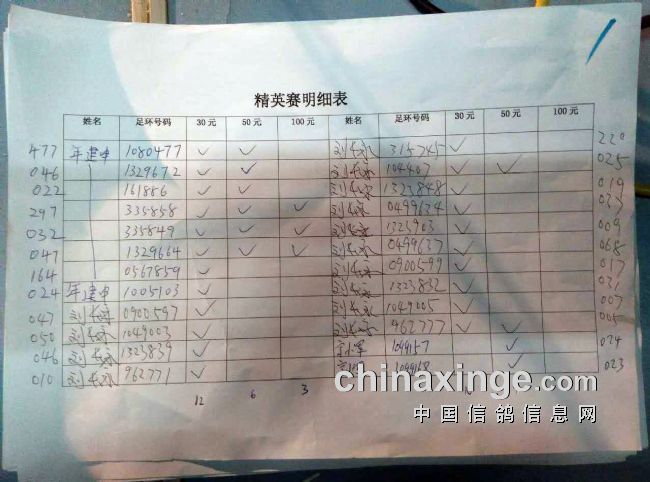 精英赛明细表
姓名 足环号码 30元 50元 100元 姓名 足环号码 30元 50元 100元
477 年建中 1080477 ✓ ✓ 315745 ✓ 220
046 1329672 ✓ ✓ 104407 ✓ ✓ 025
022 161856 ✓ ✓ 1323848 ✓ 019
297 335858 ✓ ✓ ✓ 0499634 ✓
032 335849 ✓ ✓ ✓ 1325903 ✓ 009
047 1329664 ✓ ✓ ✓ 0499637 ✓ 068
164 0567859 ✓ 0900599 ✓ 017
024 年建中 1005103 ✓ 1323832 ✓ 031
047 0900597 ✓ 1049005 ✓ 007
050 1049003 ✓ 962777 ✓ ✓ 005
046 1323839 ✓ 1049157 ✓ 024
010 962771 ✓ 1049168 ✓ 023
12 6 3
chinaxinge.com
中国信鸽信息网